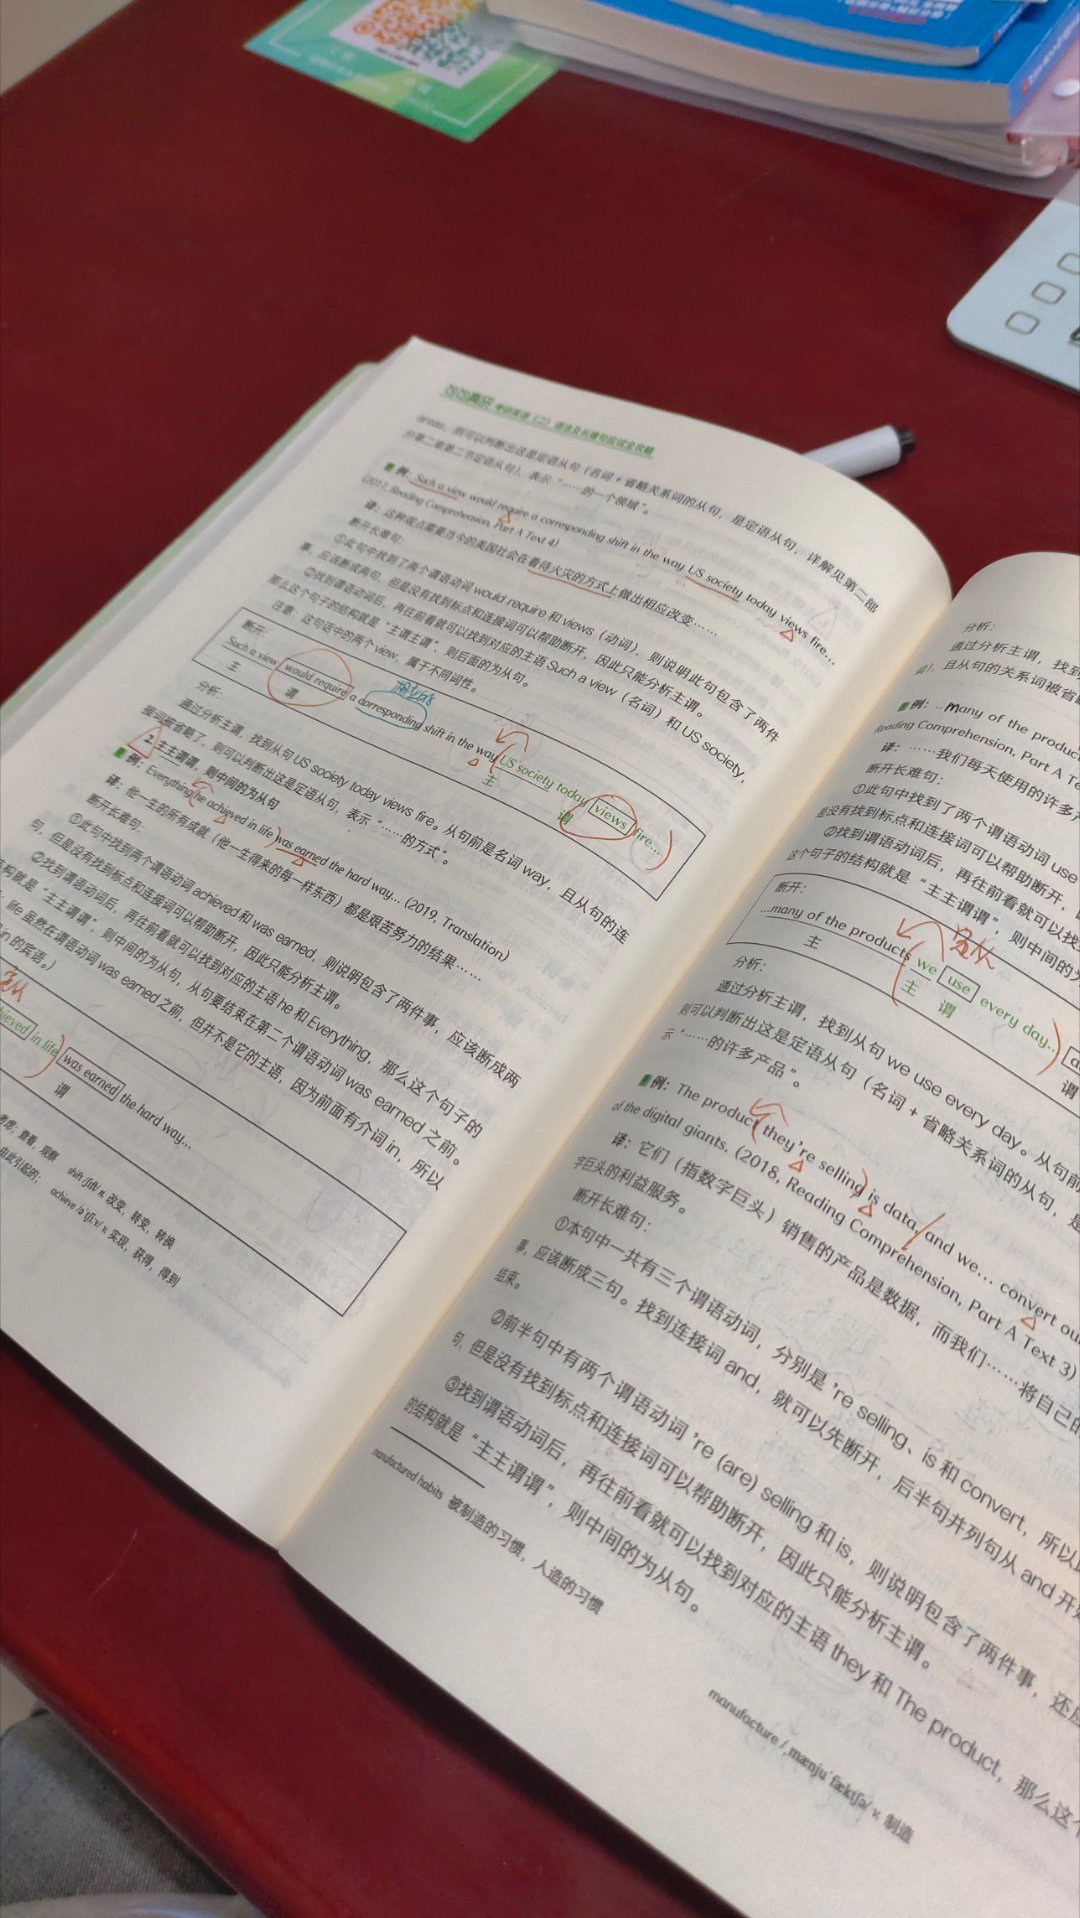 考研英语（二）语法及长难句应试全攻略
areas，则可以判断出这是定语从句（名词 + 省略关系词的从句，是定语从句，详解见第二部
分第二章第二节定语从句），表示“……的一个领域”。
例：Such a view would require a corresponding shift in the way US society today views fire...
(2017, Reading Comprehension, Part A Text 4)
译：这种观点需要当今的美国社会在看待火灾的方式上做出相应改变……
断开长难句：
①此句中找到了两个谓语动词 would require 和 views（动词），则说明此句包含了两件
事，应该断成两句，但是没有找到标点和连接词可以帮助断开，因此只能分析主谓。
②找到谓语动词后，再往前看就可以找到对应的主语 Such a view（名词）和 US society，
那么这个句子的结构就是“主谓主谓”，则后面的为从句。
注意：这句话中的两个 view，属于不同词性。
断开：
相应的
Such a view would require a corresponding shift in the way US society today views fire...
主 谓 主 谓
分析：
通过分析主谓，找到从句 US society today views fire。从句前是名词 way，且从句的连
接词被省略了，则可以判断出这是定语从句，表示“……的方式”。
2. 主主谓谓，则中间的为从句
例：Everything he achieved in life was earned the hard way... (2019, Translation)
译：他一生的所有成就（他一生得来的每一样东西）都是艰苦努力的结果……
断开长难句：
①此句中找到两个谓语动词 achieved 和 was earned，则说明包含了两件事，应该断成两
句，但是没有找到标点和连接词可以帮助断开，因此只能分析主谓。
②找到谓语动词后，再往前看就可以找到对应的主语 he 和 Everything，那么这个句子的
构就是“主主谓谓”，则中间的为从句，从句要结束在第二个谓语动词 was earned 之前。
life 虽然在谓语动词 was earned 之前，但并不是它的主语，因为前面有介词 in，所以
in 的宾语。）
定从
hieved in life was earned the hard way...
谓
考虑；查看，观察 shift /ʃɪft/ n. 改变，转变，转换
由此引起的； achieve /əˈtʃiːv/ v. 实现，获得，得到
分析：
通过分析主谓，找到
词），且从句的关系词被省
例：...many of the product
Reading Comprehension, Part A Te
译：……我们每天使用的许多产
断开长难句：
①此句中找到了两个谓语动词 use
是没有找到标点和连接词可以帮助断开，
②找到谓语动词后，再往前看就可以找
这个句子的结构就是“主主谓谓”，则中间的为
断开：
定从
...many of the products we use every day... a
主 主 谓 谓
分析：
通过分析主谓，找到从句 we use every day。从句前
则可以判断出这是定语从句（名词 + 省略关系词的从句，是
示“……的许多产品”。
例：The product they're selling is data, and we... convert ou
of the digital giants. (2018, Reading Comprehension, Part A Text 3)
译：它们（指数字巨头）销售的产品是数据，而我们……将自己的
字巨头的利益服务。
断开长难句：
①本句中一共有三个谓语动词，分别是 're selling、is 和 convert，所以
事，应该断成三句。找到连接词 and，就可以先断开，后半句并列句从 and 开始
结束。
②前半句中有两个谓语动词 're (are) selling 和 is，则说明包含了两件事，还应
句，但是没有找到标点和连接词可以帮助断开，因此只能分析主谓。
③找到谓语动词后，再往前看就可以找到对应的主语 they 和 The product，那么这个
的结构就是“主主谓谓”，则中间的为从句。
manufactured habits 被制造的习惯，人造的习惯
manufacture /ˌmænjuˈfæktʃə/ v. 制造